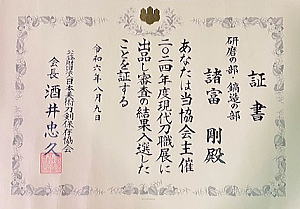 証書
研磨の部・鎬造の部
諸富 剛殿
あなたは当協会主催
二〇二四年度現代刀職展に
出品し審査の結果入選した
ことを証する
令和六年八月九日
公益財団法人日本美術刀剣保存協会
会長 酒井忠久